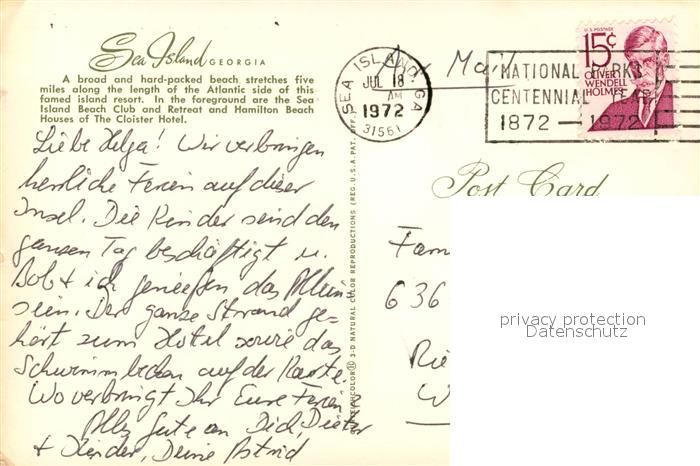 Sea Island GEORGIA
A broad and hard-packed beach stretches five
miles along the length of the Atlantic side of this
famed island resort. In the foreground are the Sea
Island Beach Club and Retreat and Hamilton Beach
Houses of The Cloister Hotel.
Liebe Helga! Wir verbringen
herrliche Ferien auf dieser
Insel. Die Kinder sind den
ganzen Tag beschäftigt u.
Bob + ich genießen das Allein-
sein. Der ganze Strand ge-
hört zum Hotel sowie das
Schwimmbecken auf der Karte.
Wo verbringt Ihr Eure Ferien?
Alles Gute an Dich, Dieter
+ Kinder, Deine Astrid
3-D NATURAL COLOR REPRODUCTIONS (REG. U.S.A. PAT. OFF.
SEA ISLAND, GA
JUL 18
AM
1972
31561
Air Mail
NATIONAL PARKS
CENTENNIAL YEAR
1872 — 1972
U.S. POSTAGE
15c
OLIVER
WENDELL
HOLMES
Post Card
Fam
636
privacy protection
Datenschutz